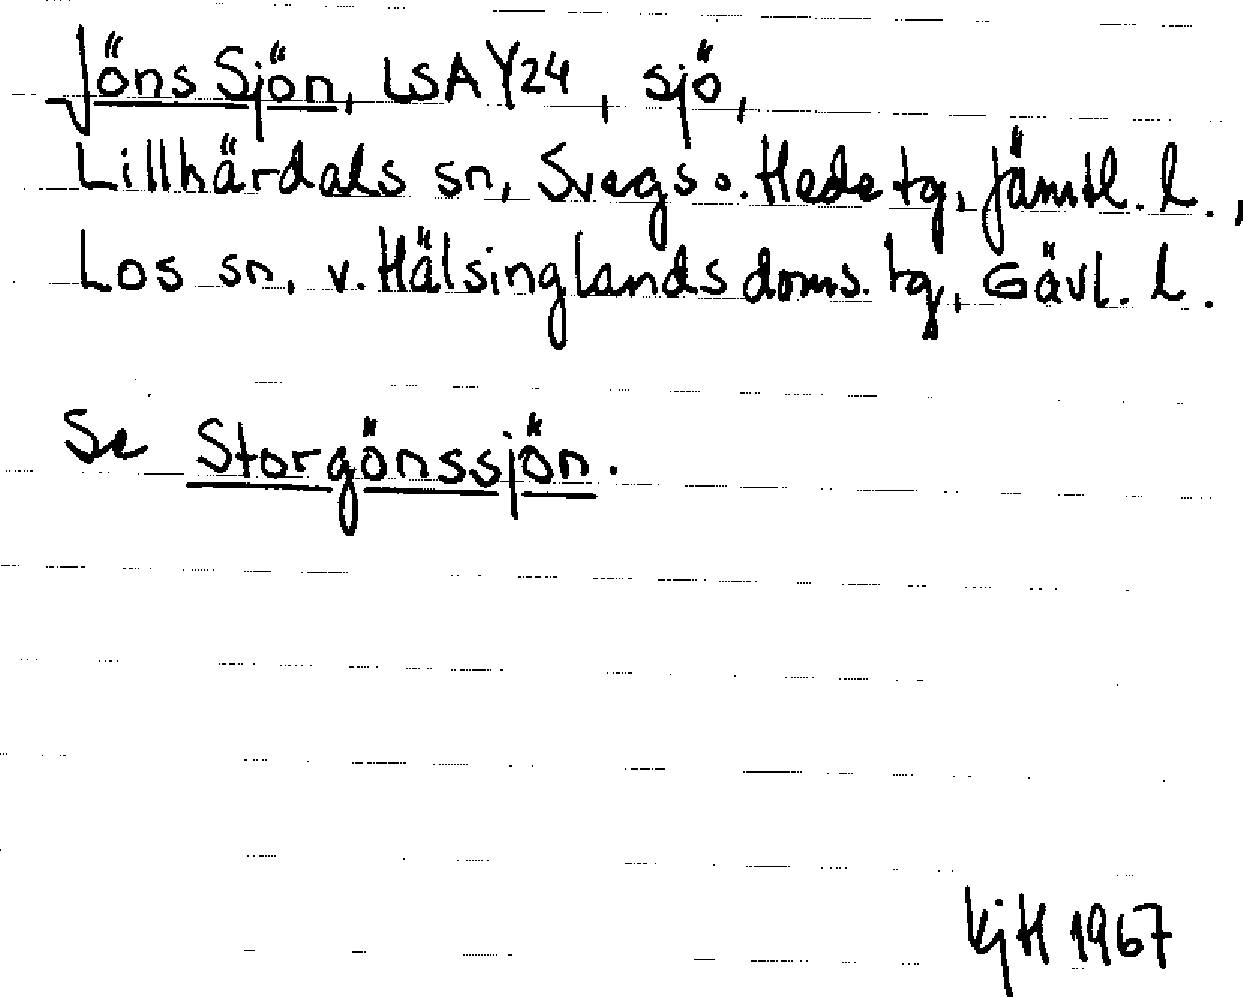 Jöns Sjön, LSA Y24, sjö,
Lillhärdals sn, Svegs o. Hede tg, Jämtl. l.,
Los sn, v. Hälsinglands doms. tg, Gävl. l.
Se Storgönssjön.
KjH 1967